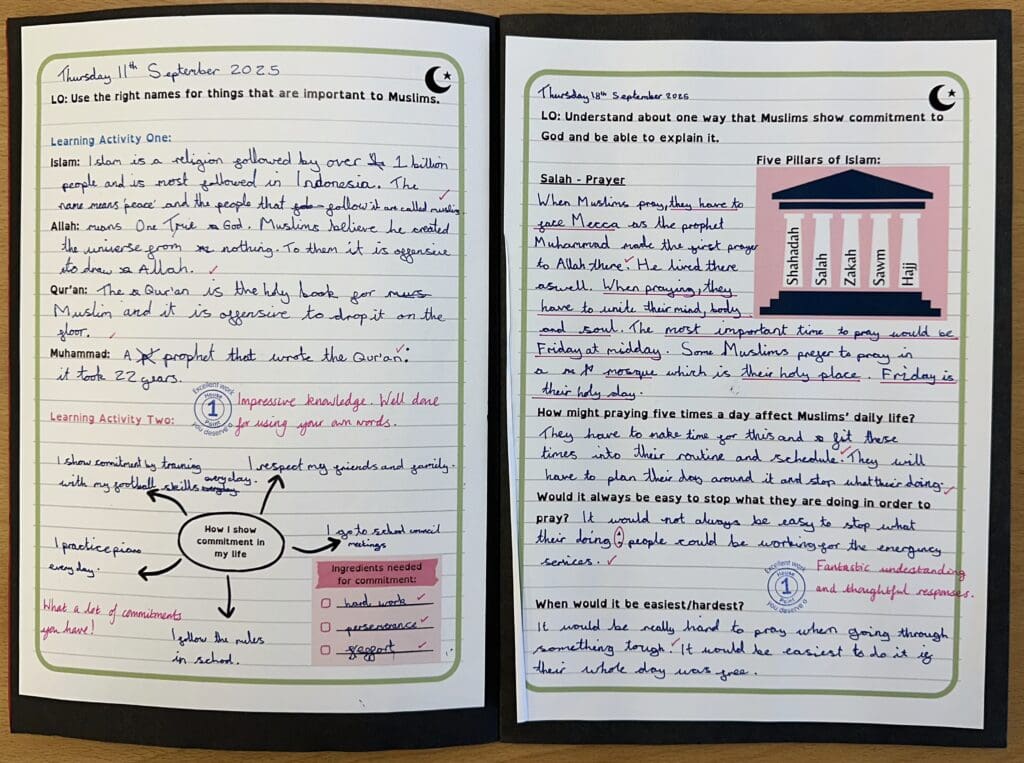 Thursday 11th September 2025
LO: Use the right names for things that are important to Muslims.
Learning Activity One:
Islam: Islam is a religion followed by over 1 billion
people and is most followed in Indonesia. The
name means 'peace' and the people that follow it are called muslims.
Allah: means One True God. Muslims believe he created
the universe from nothing. To them it is offensive
to draw Allah.
Qur'an: The Qur'an is the holy book for mus
Muslim and it is offensive to drop it on the
floor.
Muhammad: A prophet that wrote the Qur'an:
it took 22 years.
Excellent work
House
1
Point
you deserve a
Impressive knowledge. Well done
for using your own words.
Learning Activity Two:
I show commitment by training
with my football skills everyday.
everyday
I respect my friends and family.
How I show
commitment in
my life
I go to school council
meetings
I practice piano
every day.
I follow the rules
in school.
What a lot of commitments
you have!
Ingredients needed
for commitment:
hard work
perseverance
support
Thursday 18th September 2025
LO: Understand about one way that Muslims show commitment to
God and be able to explain it.
Five Pillars of Islam:
Shahadah
Salah
Zakah
Sawm
Hajj
Salah - Prayer
When Muslims pray, they have to
face Mecca as the prophet
Muhammad made the first prayer
to Allah there. He lived there
aswell. When praying, they
have to unite their mind, body
and soul. The most important time to pray would be
Friday at midday. Some Muslims prefer to pray in
a mosque which is their holy place. Friday is
their holy day.
How might praying five times a day affect Muslims' daily life?
They have to make time for this and fit these
times into their routine and schedule. They will
have to plan their day around it and stop what their doing.
Would it always be easy to stop what they are doing in order to
pray? It would not always be easy to stop what
their doing; people could be working for the emergency
services.
Excellent work
House
1
Point
you deserve a
Fantastic understanding
and thoughtful responses.
When would it be easiest/hardest?
It would be really hard to pray when going through
something tough. It would be easiest to do it if
their whole day was free.